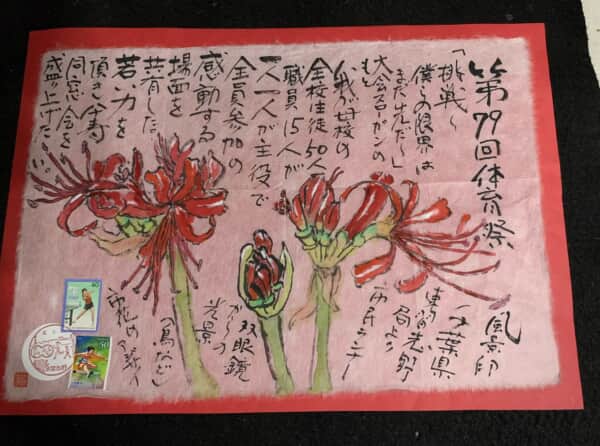 第79回体育祭
「挑戦〜
僕らの限界は
まだまだだ〜」
大会スローガンの
もと
我が母校の
全校生徒50人
職員15人が
一人一人が主役で
全員参加の
感動する
場面を
共有した。
若い力を
頂き
同窓会を
盛り上げたい。
風景印
千葉県
局より
市民ランナー
双眼鏡
からの
光景